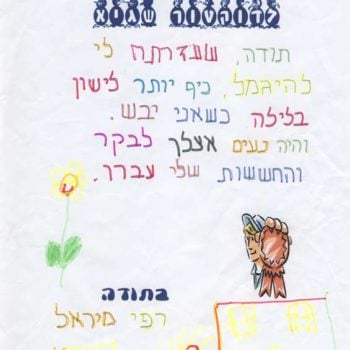 לדוקטור שגיא
תודה, שעזרתה לי
להיגמל, כיף יותר לישון
בלילה כשאני יבש.
והיה נעים אצלך לבקר
והחששות שלי עברו.
בתודה
רפי מיראל